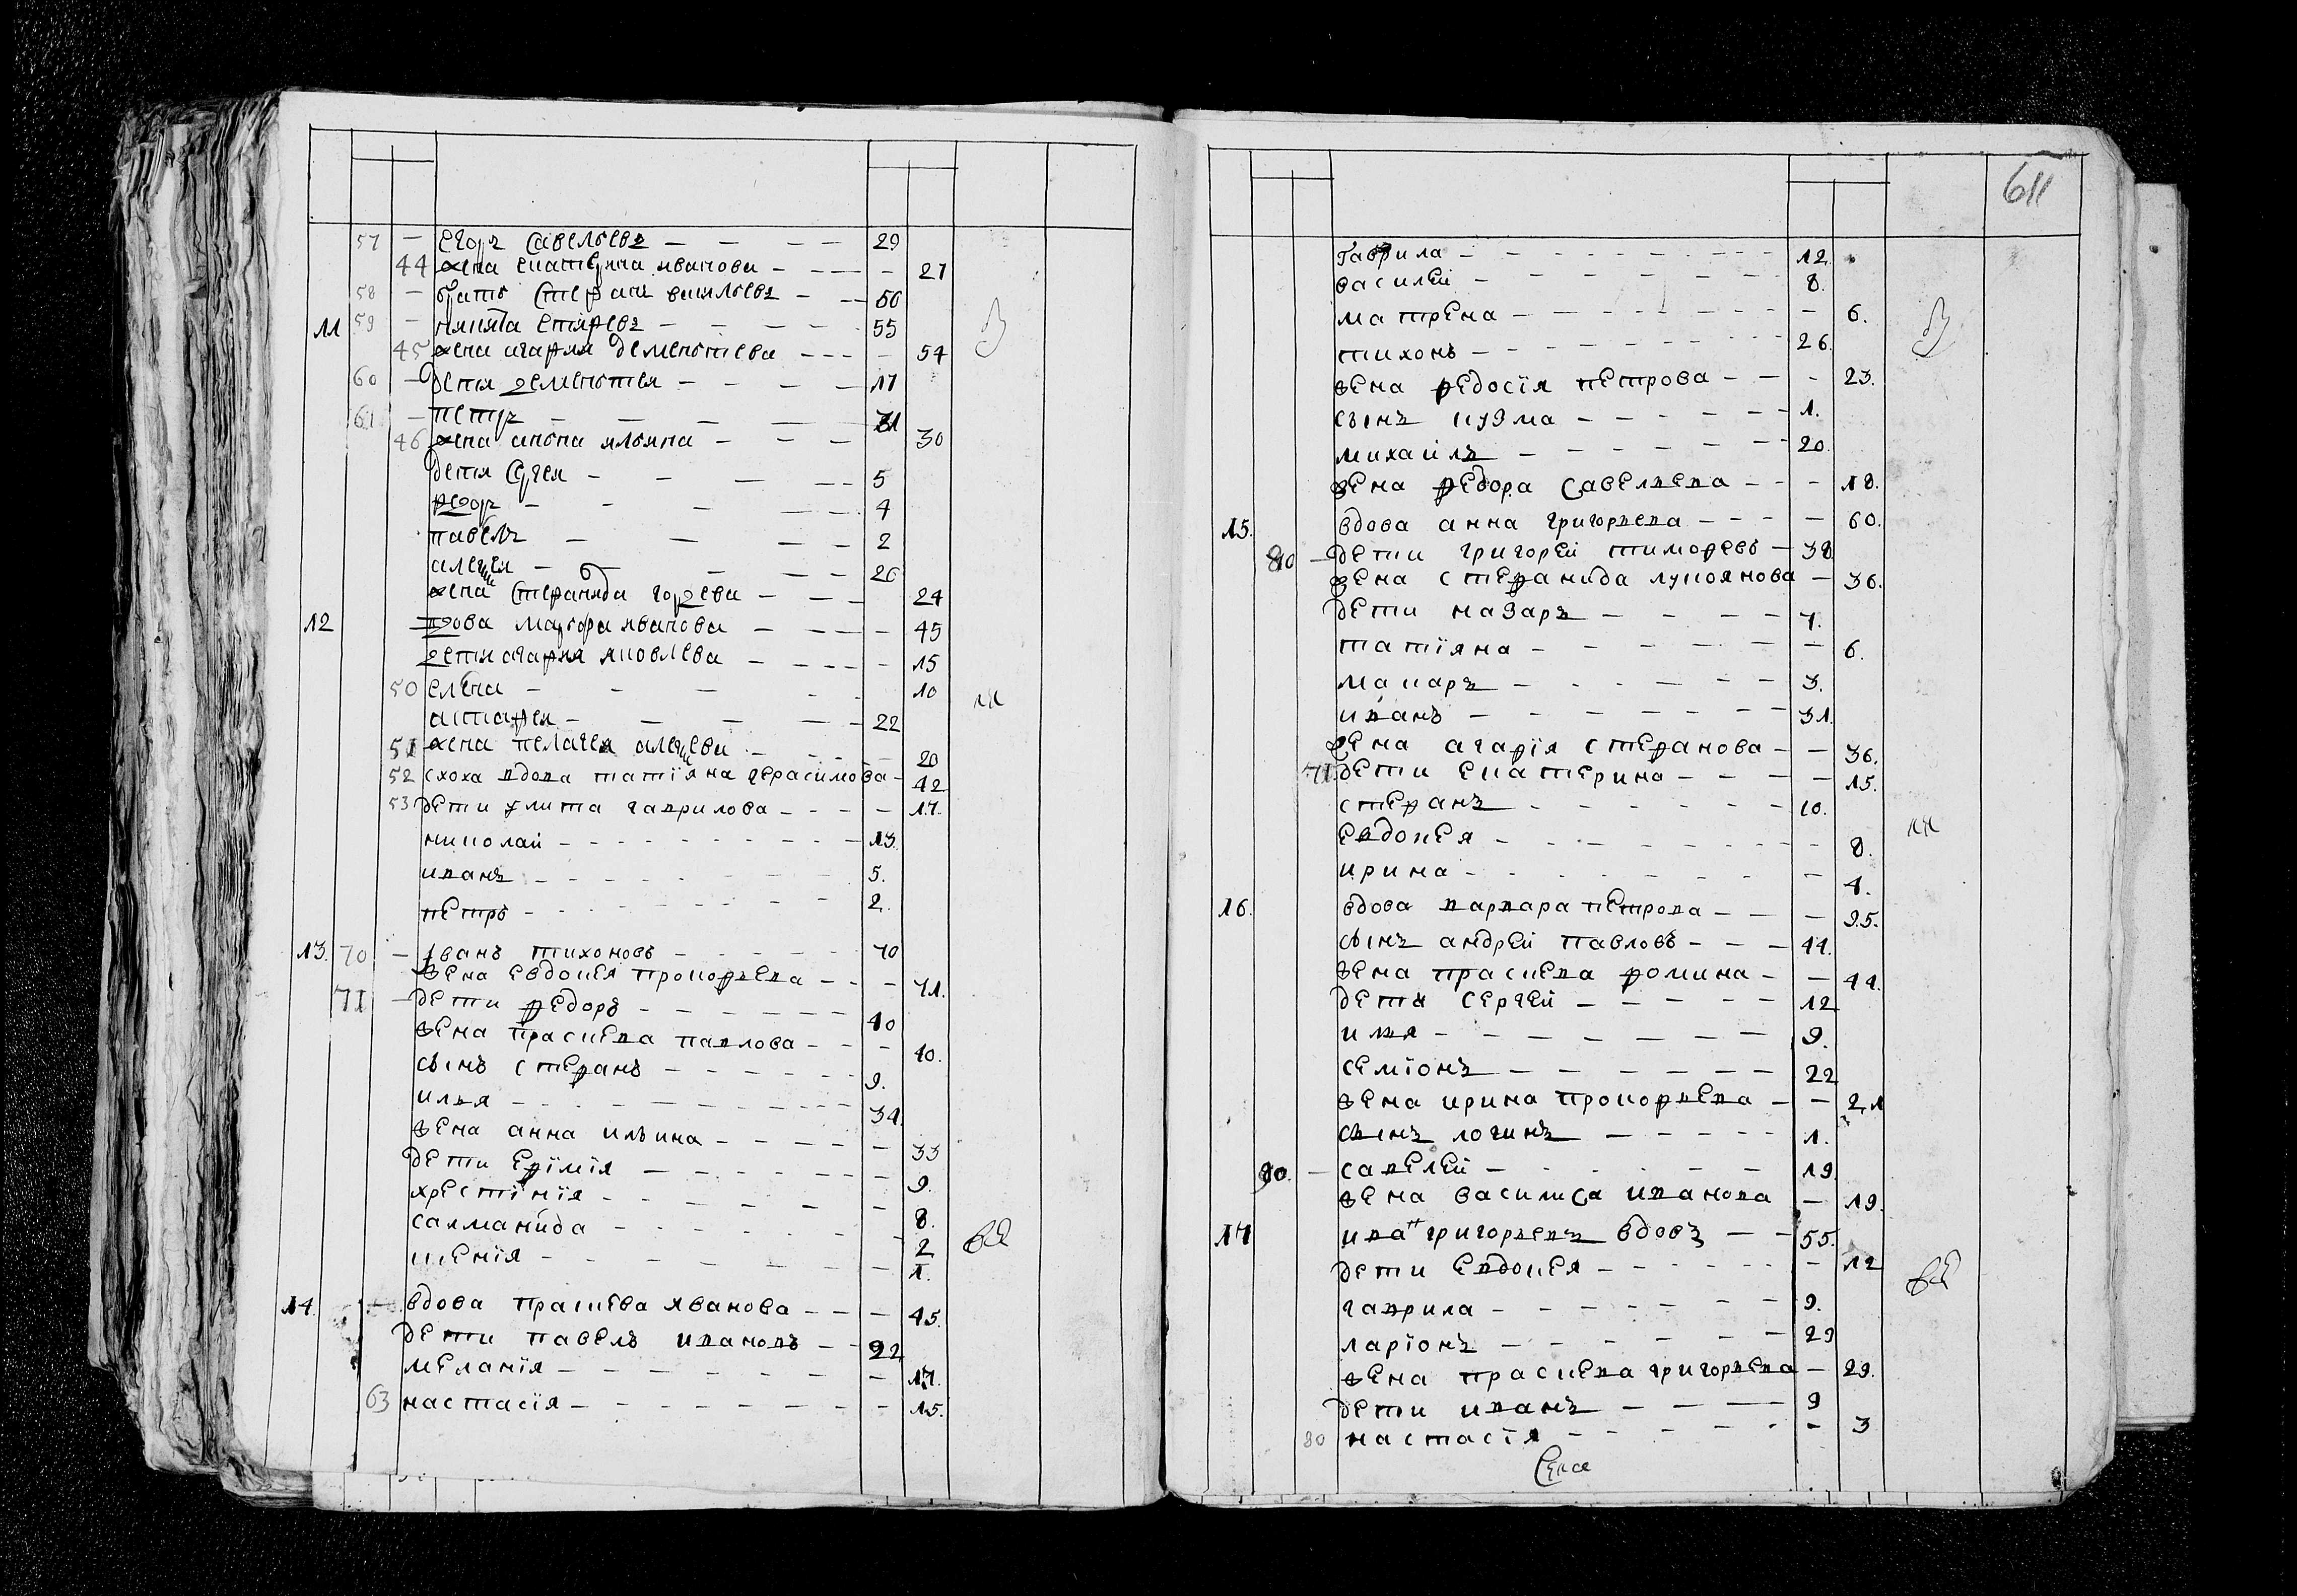 611
57 — Егоръ Савельевъ — — — — 29
44 жена екатерина иванова — — — — 27
58 — братъ Стефанъ васильевъ — — — 50
11 59 — никита
45 жена агафия дементиева — — — — 54
60 — дети дементея — — — — 17
61 — петръ — — — — 31
46 жена
дети Сергея — — — — 5
федоръ — — — — 4
павелъ — — — — 2
алексея — — — — 26
жена Стефанида — — — 24
12 вдова марфа иванова — — — — 45
дети агафия яковлева — — — — 15
50 елена — — — 10
астафея — — — — — 22
51 жена пелагея алексеева — — — 20
52 сноха вдова татїяна герасимова — 42
53 дети улита гаврилова — — — — 17.
николаи — — — — — 13.
иванъ — — — — — 5.
петръ — — — — — 2.
13. 70 — иванъ тихоновъ — — — 70
жена евдокея прокофьева — — — 71.
71 — дети федоръ — — — — — 40
жена праскева павлова — — — 40.
сынъ стефанъ — — — — — 9.
илья — — — — — 34.
жена анна ильина — — — — — 33
дети ефїмїя — — — — — 9.
хрестїнїя — — — — — 8.
салманида — — — — — 2
ксенїя — — — — — 1.
14. — вдова праскева иванова — — — 45.
дети павелъ ивановъ — — 22
меланїя — — — — — 17.
63 настасїя — — — — — 15.
гаврила — — — — — 12.
василеи — — — — — 8.
матрена — — — — — 6.
тихонъ — — — — — 26.
жена федосїя петрова — — — 23.
сынъ кузма — — — — — 1.
михаилъ — — — — — 20.
жена федора Савельева — — — 18.
15. вдова анна григорьева — — — — 60.
— дети григореи тимофевъ — 38
жена стефанида лукоянова — 36.
дети назаръ — — — — 7.
татїяна — — — — — 6.
макаръ — — — — — 3.
иванъ — — — — — 31.
жена агафїя стефанова — — 36.
71 дети екатерина — — — — 15.
стефанъ — — — — — 10.
евдокея — — — — — 8.
ирина — — — — — 4.
16. вдова варвара петрова — — — 95.
сынъ андреи павловъ — — — 44.
жена праскева фомина — — 44.
дети сергеи — — — — — 12
илья — — — — — 9.
семїонъ — — — — — 22
жена ирина прокофьева — — 21
сынъ логинъ — — — — — 1.
— савелеи — — — — — 19.
жена василиса иванова — 19.
17 иванъ григорьевъ вдовъ — — 55.
дети евдокея — — — — — 12
гаврила — — — — — 9.
ларїонъ — — — — — 29
жена праскева григорьева — 29.
дети иванъ — — — — 9
80 настасїя — — — — — 3